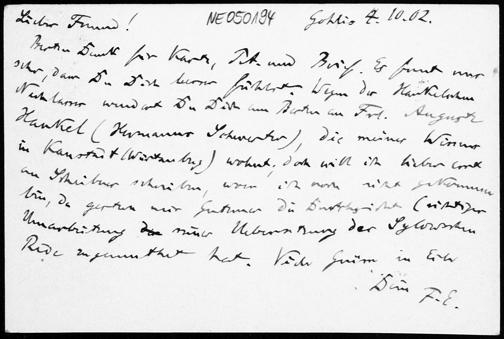 Lieber Freund! NE050194 Gohlis 4.10.02.
Besten Dank für Karte, Pak. und Brief. Es freut mich
sehr, dass Du Dich besser fühlst. Wegen der Hankelschen
Nachlasses wendest Du Dich am Besten an Frl. Auguste
Hankel (Hermanns Schwester), die meines Wissens
in Kannstatt (Würtemberg) wohnt, doch will ich lieber erst
an Scheibner schreiben, wozu ich noch nicht gekommen
bin, da gestern mir Gutzmer die Durchsicht (richtiger
Umarbeitung seiner Uebersetzung der Sylowschen
Rede zugemuthet hat. Viele Grüsse in Eile
Dein F. E.